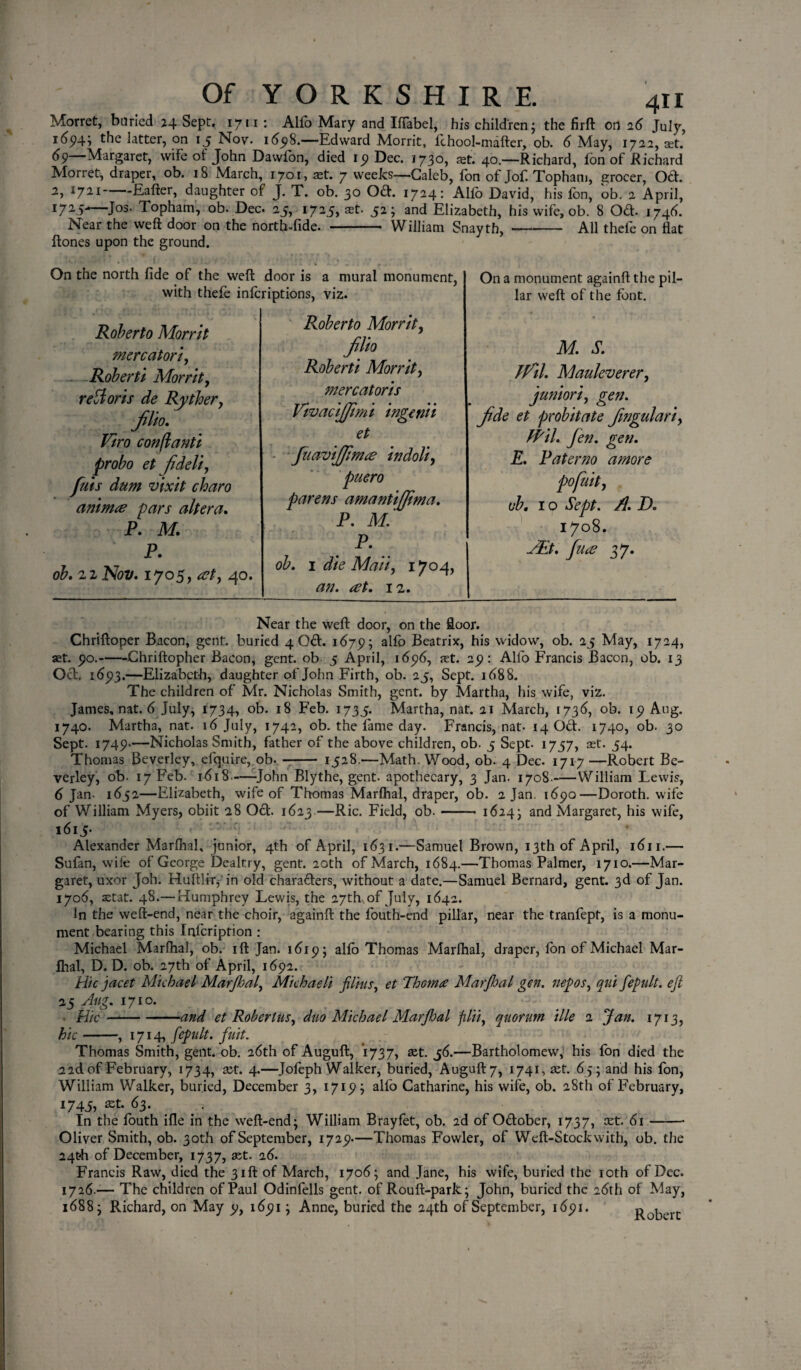 Of YORKSHIRE. 411
Morret, buried 24 Sept. 1711 : Alſo Mary and Iſſabel, his children; the firſt on 26 July,
1694; the latter, on 15 Nov. 1698.—Edward Morrit, ſchool-maſter, ob. 6 May, 1722, æt.
69—Margaret, wife of John Dawſon, died 19 Dec. 1730, æt. 40.—Richard, ſon of Richard
Morret, draper, ob. 18 March, 1701, æt. 7 weeks—Caleb, ſon of Joſ. Topham, grocer, Oct.
2, 1721——Eaſter, daughter of J. T. ob. 30 Oct. 1724: Alſo David, his ſon, ob. 2 April,
1725——Jos. Topham, ob. Dec. 25, 1725, æt. 52; and Elizabeth, his wife, ob. 8 Oct. 1746.
Near the weſt door on the north-ſide. ——— William Snayth, ——— All theſe on flat
ſtones upon the ground.
On the north ſide of the weſt door is a mural monument,
with theſe inſcriptions, viz.
Roberto Morrit
mercatori,
Roberti Morrit,
rectoris de Ryther,
filio.
Viro conſtanti
probo et fideli,
ſuis dum vixit charo
animæ pars altera.
P. M.
P.
ob. 22 Nov. 1705, æt, 40.
Roberto Morrit,
filio
Roberti Morrit,
mercatoris
Vivaciſſimi ingenii
et
ſuaviſſimæ indoli,
puero
parens amantiſſima.
P. M.
P.
ob. 1 die Maii, 1704,
an. æt. 12.
On a monument againſt the pil-
lar weſt of the font.
M. S.
Wil. Mauleverer,
juniori, gen.
fide et probitate ſingulari,
Wil. ſen. gen.
E. Paterno amore
poſuit,
ob. 10 Sept. A. D.
1708.
Æt. ſuæ 37.
Near the weſt door, on the floor.
Chriſtoper Bacon, gent. buried 4 Oct. 1679; alſo Beatrix, his widow, ob. 25 May, 1724,
æt. 90.——Chriſtopher Bacon, gent. ob 5 April, 1696, æt. 29: Alſo Francis Bacon, ob. 13
Oct. 1693.—Elizabeth, daughter of John Firth, ob. 25, Sept. 1688.
The children of Mr. Nicholas Smith, gent. by Martha, his wife, viz.
James, nat. 6 July, 1734, ob. 18 Feb. 1735. Martha, nat. 21 March, 1736, ob. 19 Aug.
1740. Martha, nat. 16 July, 1742, ob. the ſame day. Francis, nat. 14 Oct. 1740, ob. 30
Sept. 1749.—Nicholas Smith, father of the above children, ob. 5 Sept. 1757, æt. 54.
Thomas Beverley, eſquire, ob. —— 1528.—Math. Wood, ob. 4 Dec. 1717—Robert Be-
verley, ob. 17 Feb. 1618.——John Blythe, gent. apothecary, 3 Jan. 1708——William Lewis,
6 Jan. 1652—Elizabeth, wife of Thomas Marſhal, draper, ob. 2 Jan. 1690—Doroth. wife
of William Myers, obiit 28 Oct. 1623.—Ric. Field, ob. —— 1624; and Margaret, his wife,
1615.
Alexander Marſhal, junior, 4th of April, 1631.—Samuel Brown, 13th of April, 1611.—
Suſan, wife of George Dealtry, gent. 20th of March, 1684.—Thomas Palmer, 1710.—Mar-
garet, uxor Joh. Huſtlir, in old characters, without a date.—Samuel Bernard, gent. 3d of Jan.
1706, ætat. 48.—Humphrey Lewis, the 27th of July, 1642.
In the weſt-end, near the choir, againſt the ſouth-end pillar, near the tranſept, is a monu-
ment bearing this Inſcription :
Michael Marſhal, ob. 1ſt Jan. 1619; alſo Thomas Marſhal, draper, ſon of Michael Mar-
ſhal, D. D. ob. 27th of April, 1692.
Hic jacet Michael Marſhal, Michaeli filius, et Thomæ Marſhal gen. nepos, qui ſepult. eſt
25 Aug. 1710.
Hic ————and et Robertus, duo Michael Marſhal filii, quorum ille 2 Jan. 1713,
hic ——, 1714, ſepult. fuit.
Thomas Smith, gent. ob. 26th of Auguſt, 1737, æt. 56.—Bartholomew, his ſon died the
22d of February, 1734, æt. 4.—Joſeph Walker, buried, Auguſt 7, 1741, æt. 65; and his ſon,
William Walker, buried, December 3, 1719; alſo Catharine, his wife, ob. 28th of February,
1745, æt. 63.
In the ſouth iſle in the weſt-end; William Brayſet, ob. 2d of October, 1737, æt. 61 ——
Oliver Smith, ob. 30th of September, 1729.—Thomas Fowler, of Weſt-Stockwith, ob. the
24th of December, 1737, æt. 26.
Francis Raw, died the 31ſt of March, 1706; and Jane, his wife, buried the 10th of Dec.
1726.— The children of Paul Odinſells gent. of Rouſt-park; John, buried the 26th of May,
1688; Richard, on May 9, 1691; Anne, buried the 24th of September, 1691.
Robert